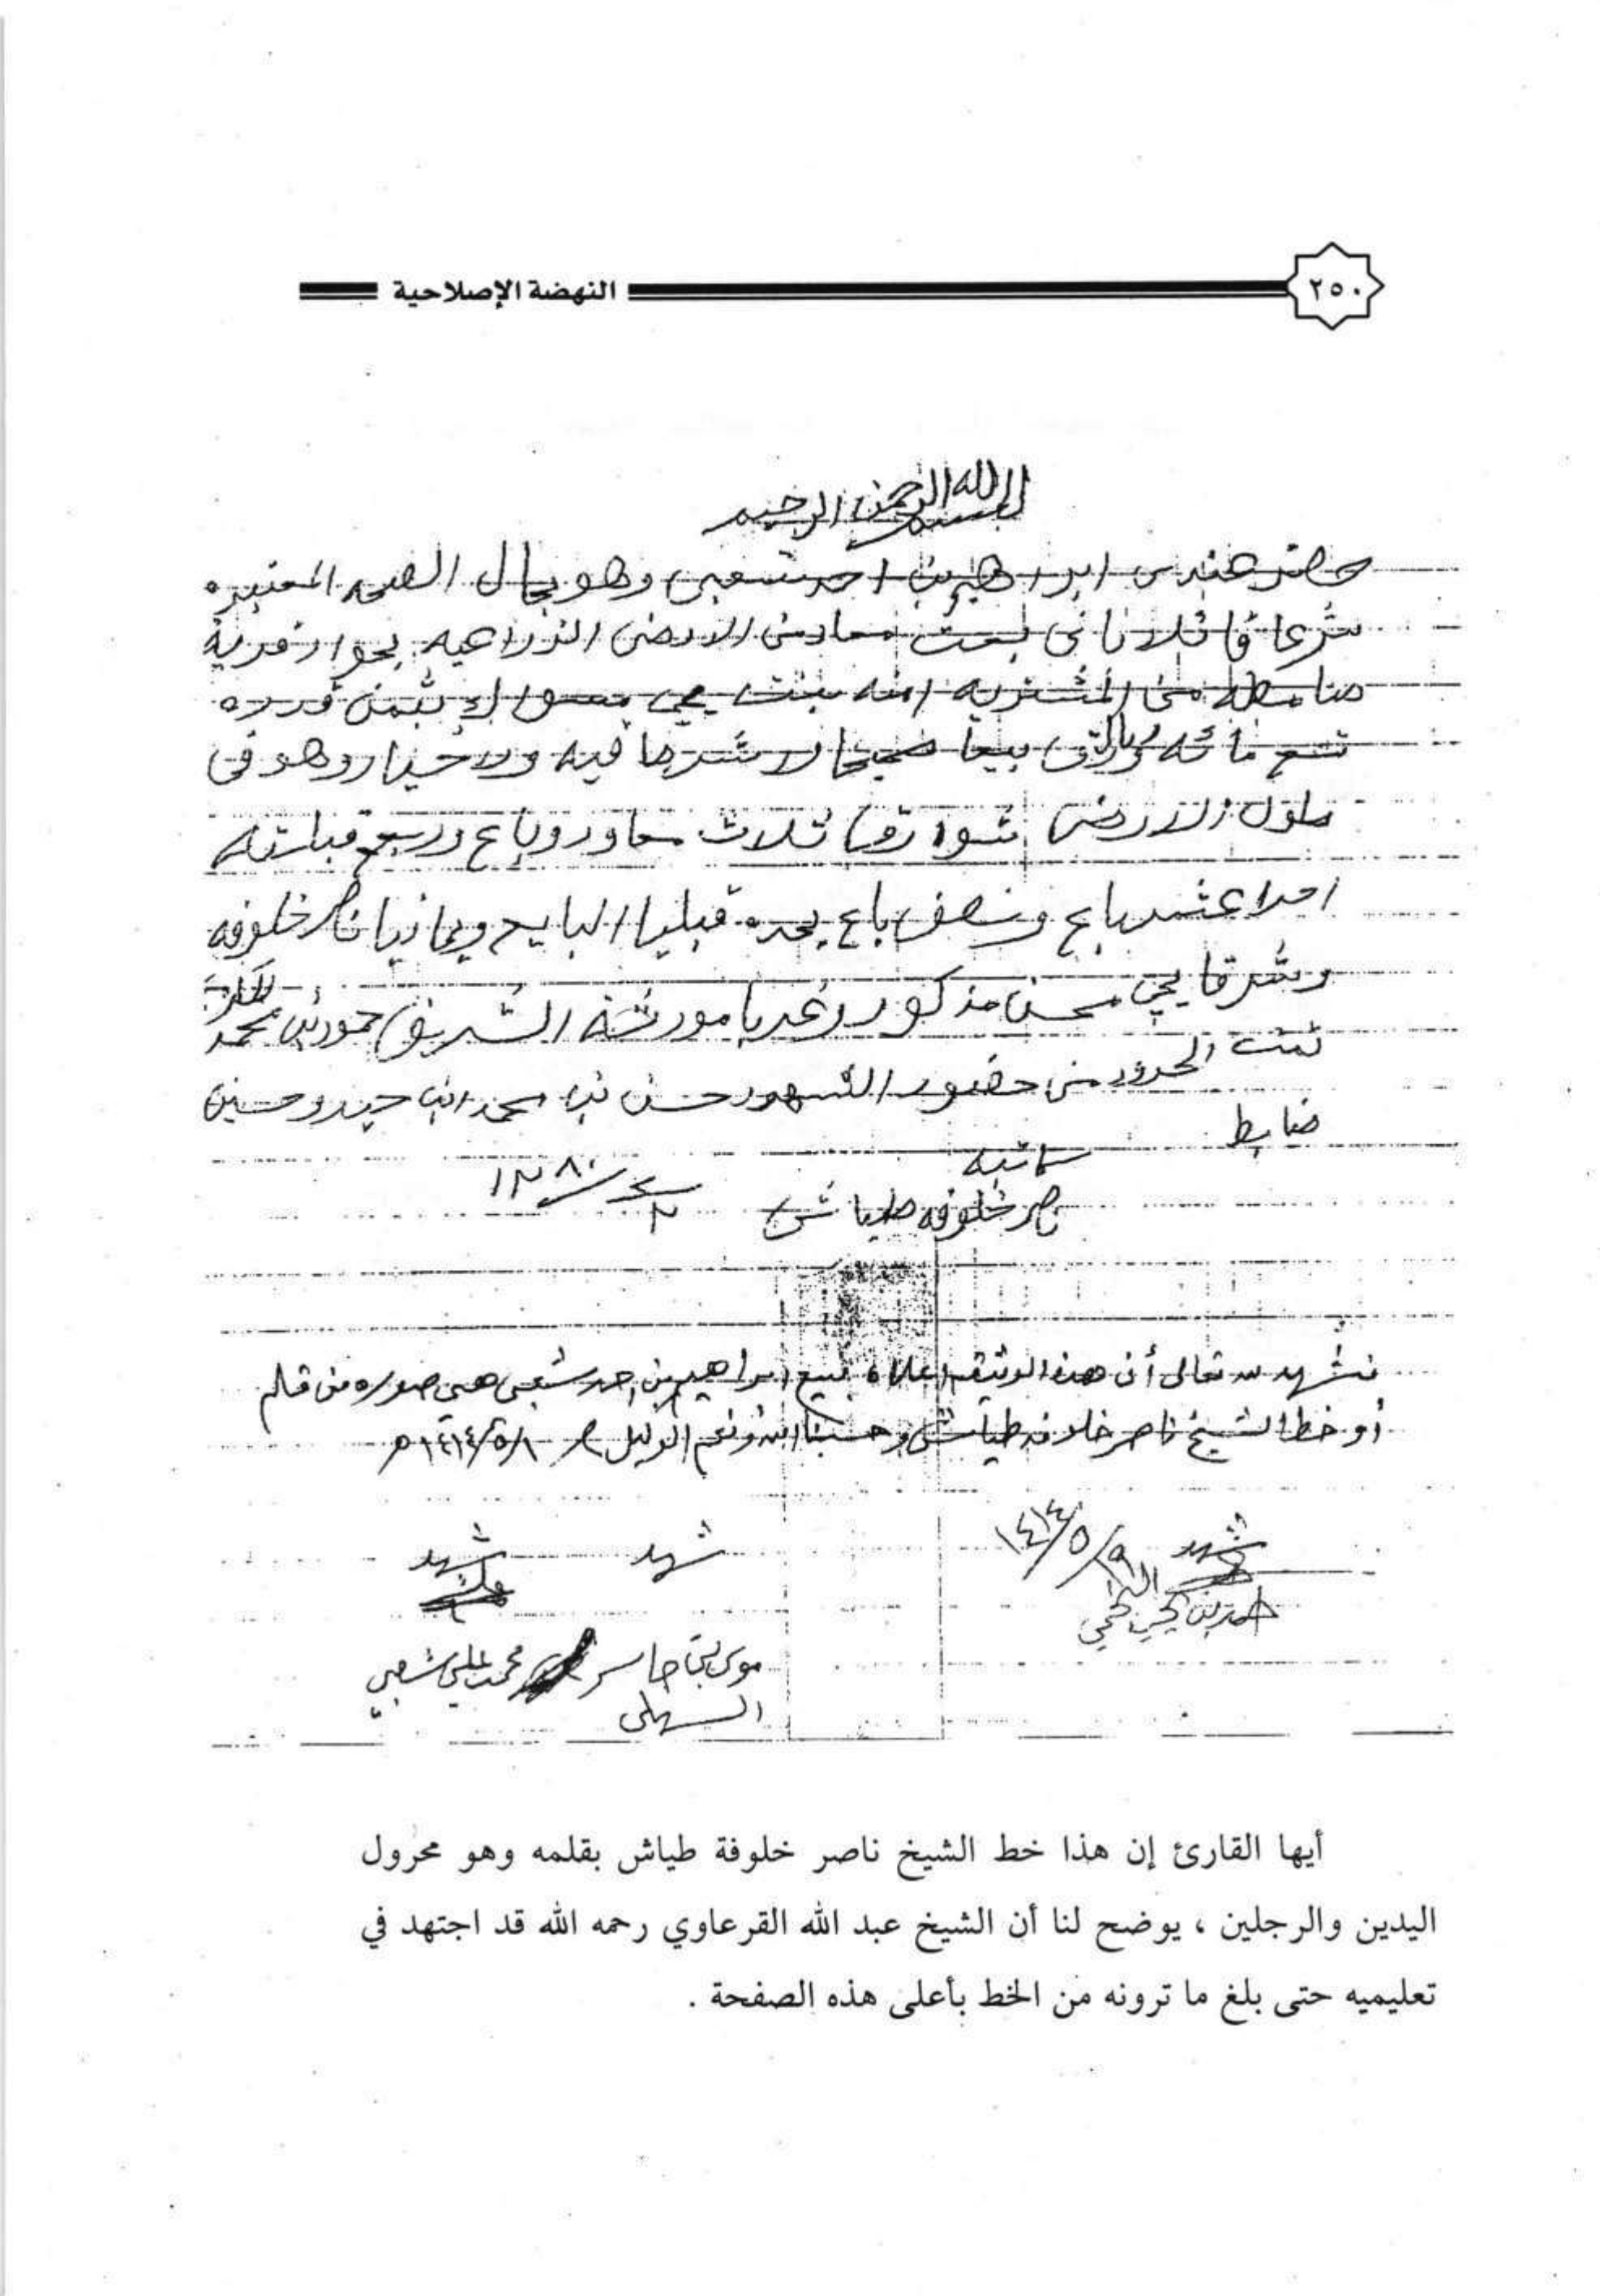 ٢٥٠
النهضة الإصلاحية
بسم الله الرحمن الرحيم
حضر عندي ابراهيم بن احمد شعبي وهو بحال الصحه المعتبره
شرعا قائلا باني بعت الارض الزراعيه بجوار قرية
من المشتريه امنه بنت يحي بثمن قدره
تسع مائه ريال بيعا صحيحا لا شرط فيه ولا خيار وهو في
طول الارض ثلاث معاود وباع وربع
احدا عشر باع ونصف باع يحده قبليا البايع ويمانيا ناصر خلوفه
وشرقا يحي محسن مذكور وغربا مورثة الشريف حمود بن محمد
تمت الحدود من حضور الشهود حسن بن محمد وحسين
ضابط
كاتبه
ناصر خلوفه طياش
١٣٨٠
نشهد لله تعالى أن هذه الوثيقه اعلاه بيع ابراهيم بن احمد شعبي هي صوره من قلم
أو خط الشيخ ناصر خلافه طياش وحسبنا الله ونعم الوكيل ١/٥/١٤١٤هـ
شهد
شهد
شهد
٩/٥/١٤١٤
موسى بن جابر السهلي
محمد علي شعبي
أيها القارئ إن هذا خط الشيخ ناصر خلوفة طياش بقلمه وهو محرول
اليدين والرجلين ، يوضح لنا أن الشيخ عبد الله القرعاوي رحمه الله قد اجتهد في
تعليميه حتى بلغ ما ترونه من الخط بأعلى هذه الصفحة .